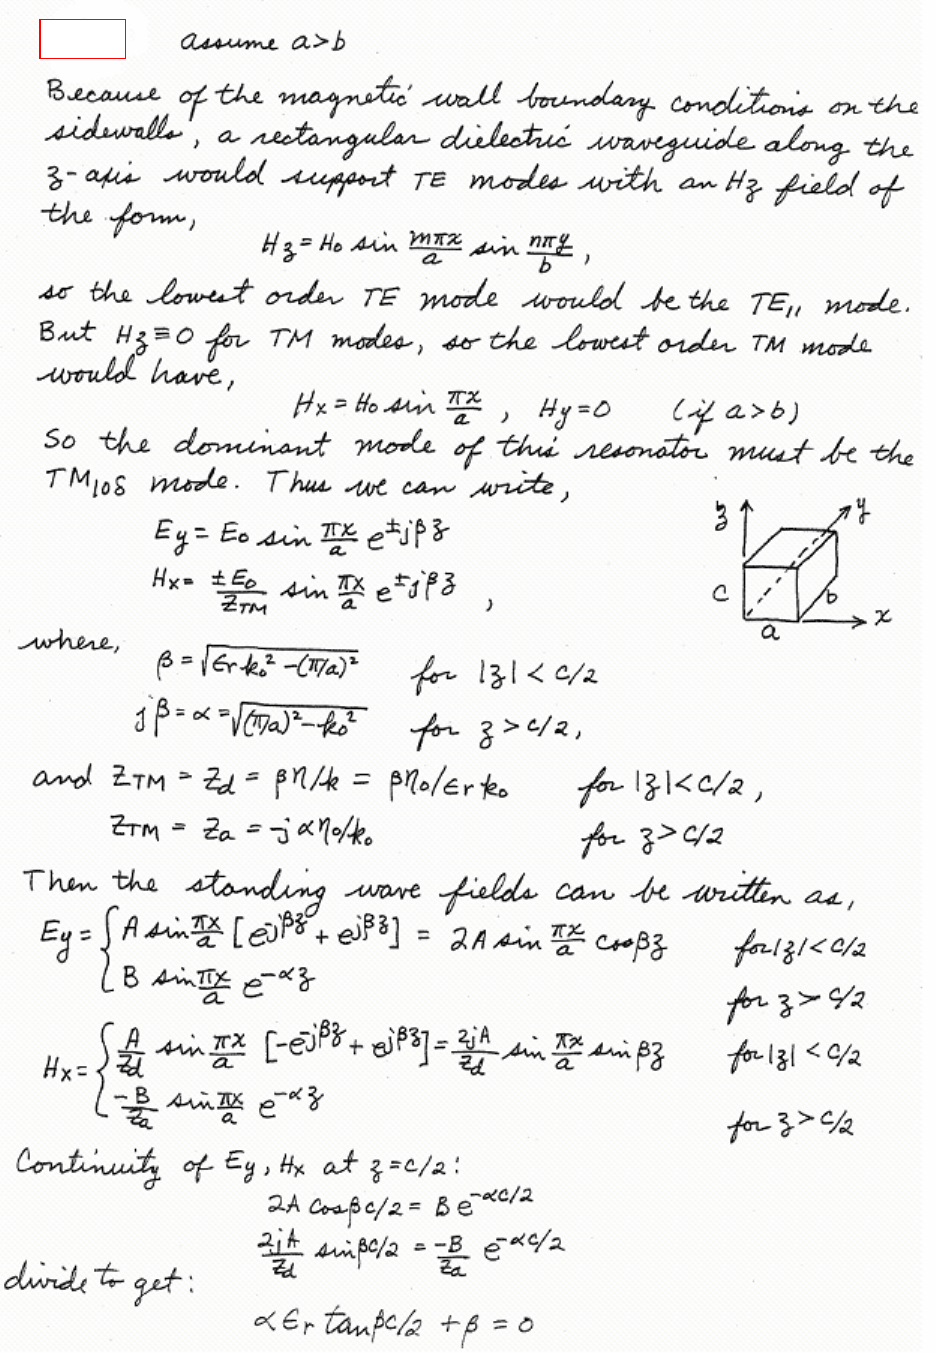 assume a>b
Because of the magnetic wall boundary conditions on the
sidewalls, a rectangular dielectric waveguide along the
z-axis would support TE modes with an Hz field of
the form,
Hz = H₀ sin mπx/a sin nπy/b ,
so the lowest order TE mode would be the TE₁₁ mode.
But Hz≡0 for TM modes, so the lowest order TM mode
would have,
Hx = H₀ sin πx/a , Hy=0 (if a>b)
So the dominant mode of this resonator must be the
TM₁₀δ mode. Thus we can write,
Ey = E₀ sin πx/a e^±jβz
Hx = ±E₀/Z_TM sin πx/a e^±jβz ,
z
y
c
b
a
x
where,
β = √(εr k₀² - (π/a)²) for |z| < c/2
jβ = α = √((π/a)² - k₀²) for z > c/2,
and Z_TM = Zd = βη/k = βη₀/εr k₀ for |z| < c/2,
Z_TM = Za = -jαη₀/k₀ for z > c/2
Then the standing wave fields can be written as,
Ey = { A sin πx/a [e^-jβz + e^jβz] = 2A sin πx/a cosβz for |z| < c/2
B sin πx/a e^-αz for z > c/2
Hx = { A/Zd sin πx/a [-e^-jβz + e^jβz] = 2jA/Zd sin πx/a sin βz for |z| < c/2
-B/Za sin πx/a e^-αz for z > c/2
Continuity of Ey, Hx at z = c/2:
2A cosβc/2 = B e^-αc/2
2jA/Zd sinβc/2 = -B/Za e^-αc/2
divide to get:
αεr tanβc/2 + β = 0